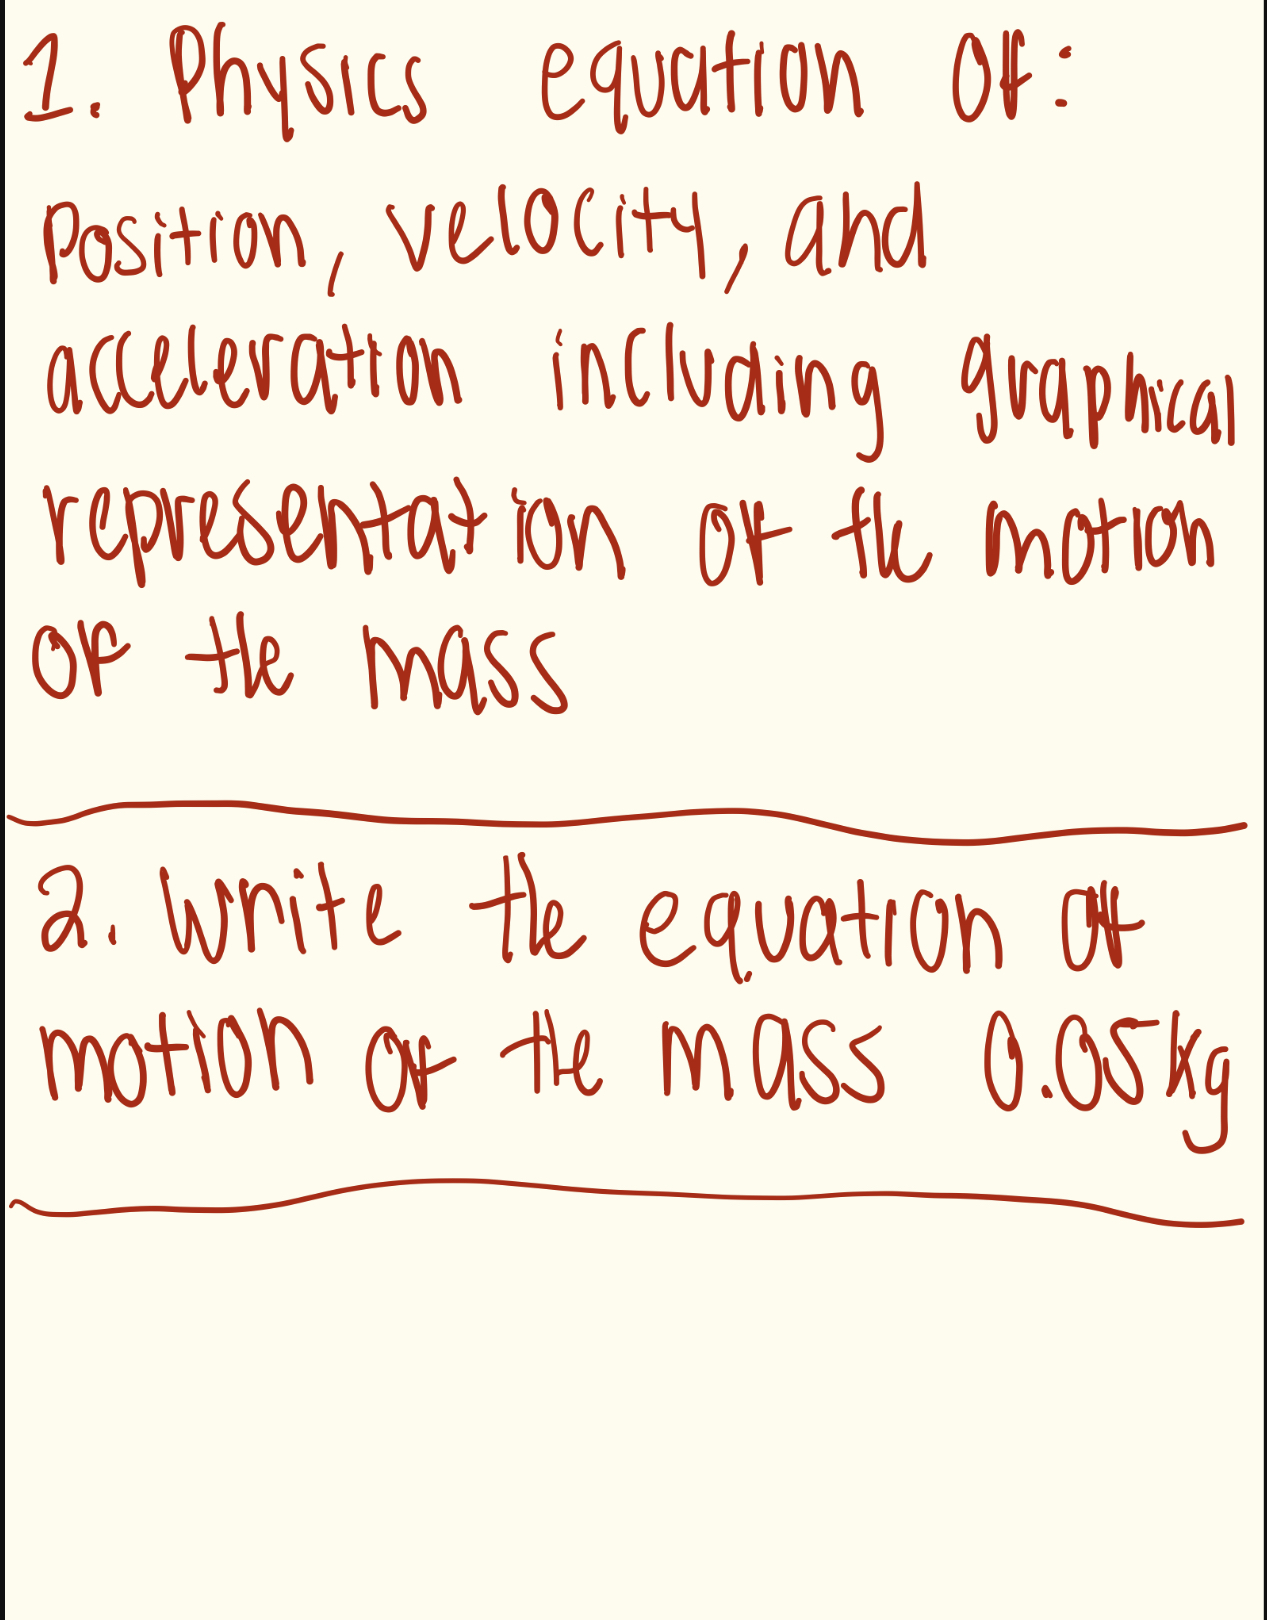 1. Physics equation of:
Position, velocity, and
acceleration including graphical
representation of the motion
of the mass
2. Write the equation of
motion of the mass 0.05kg